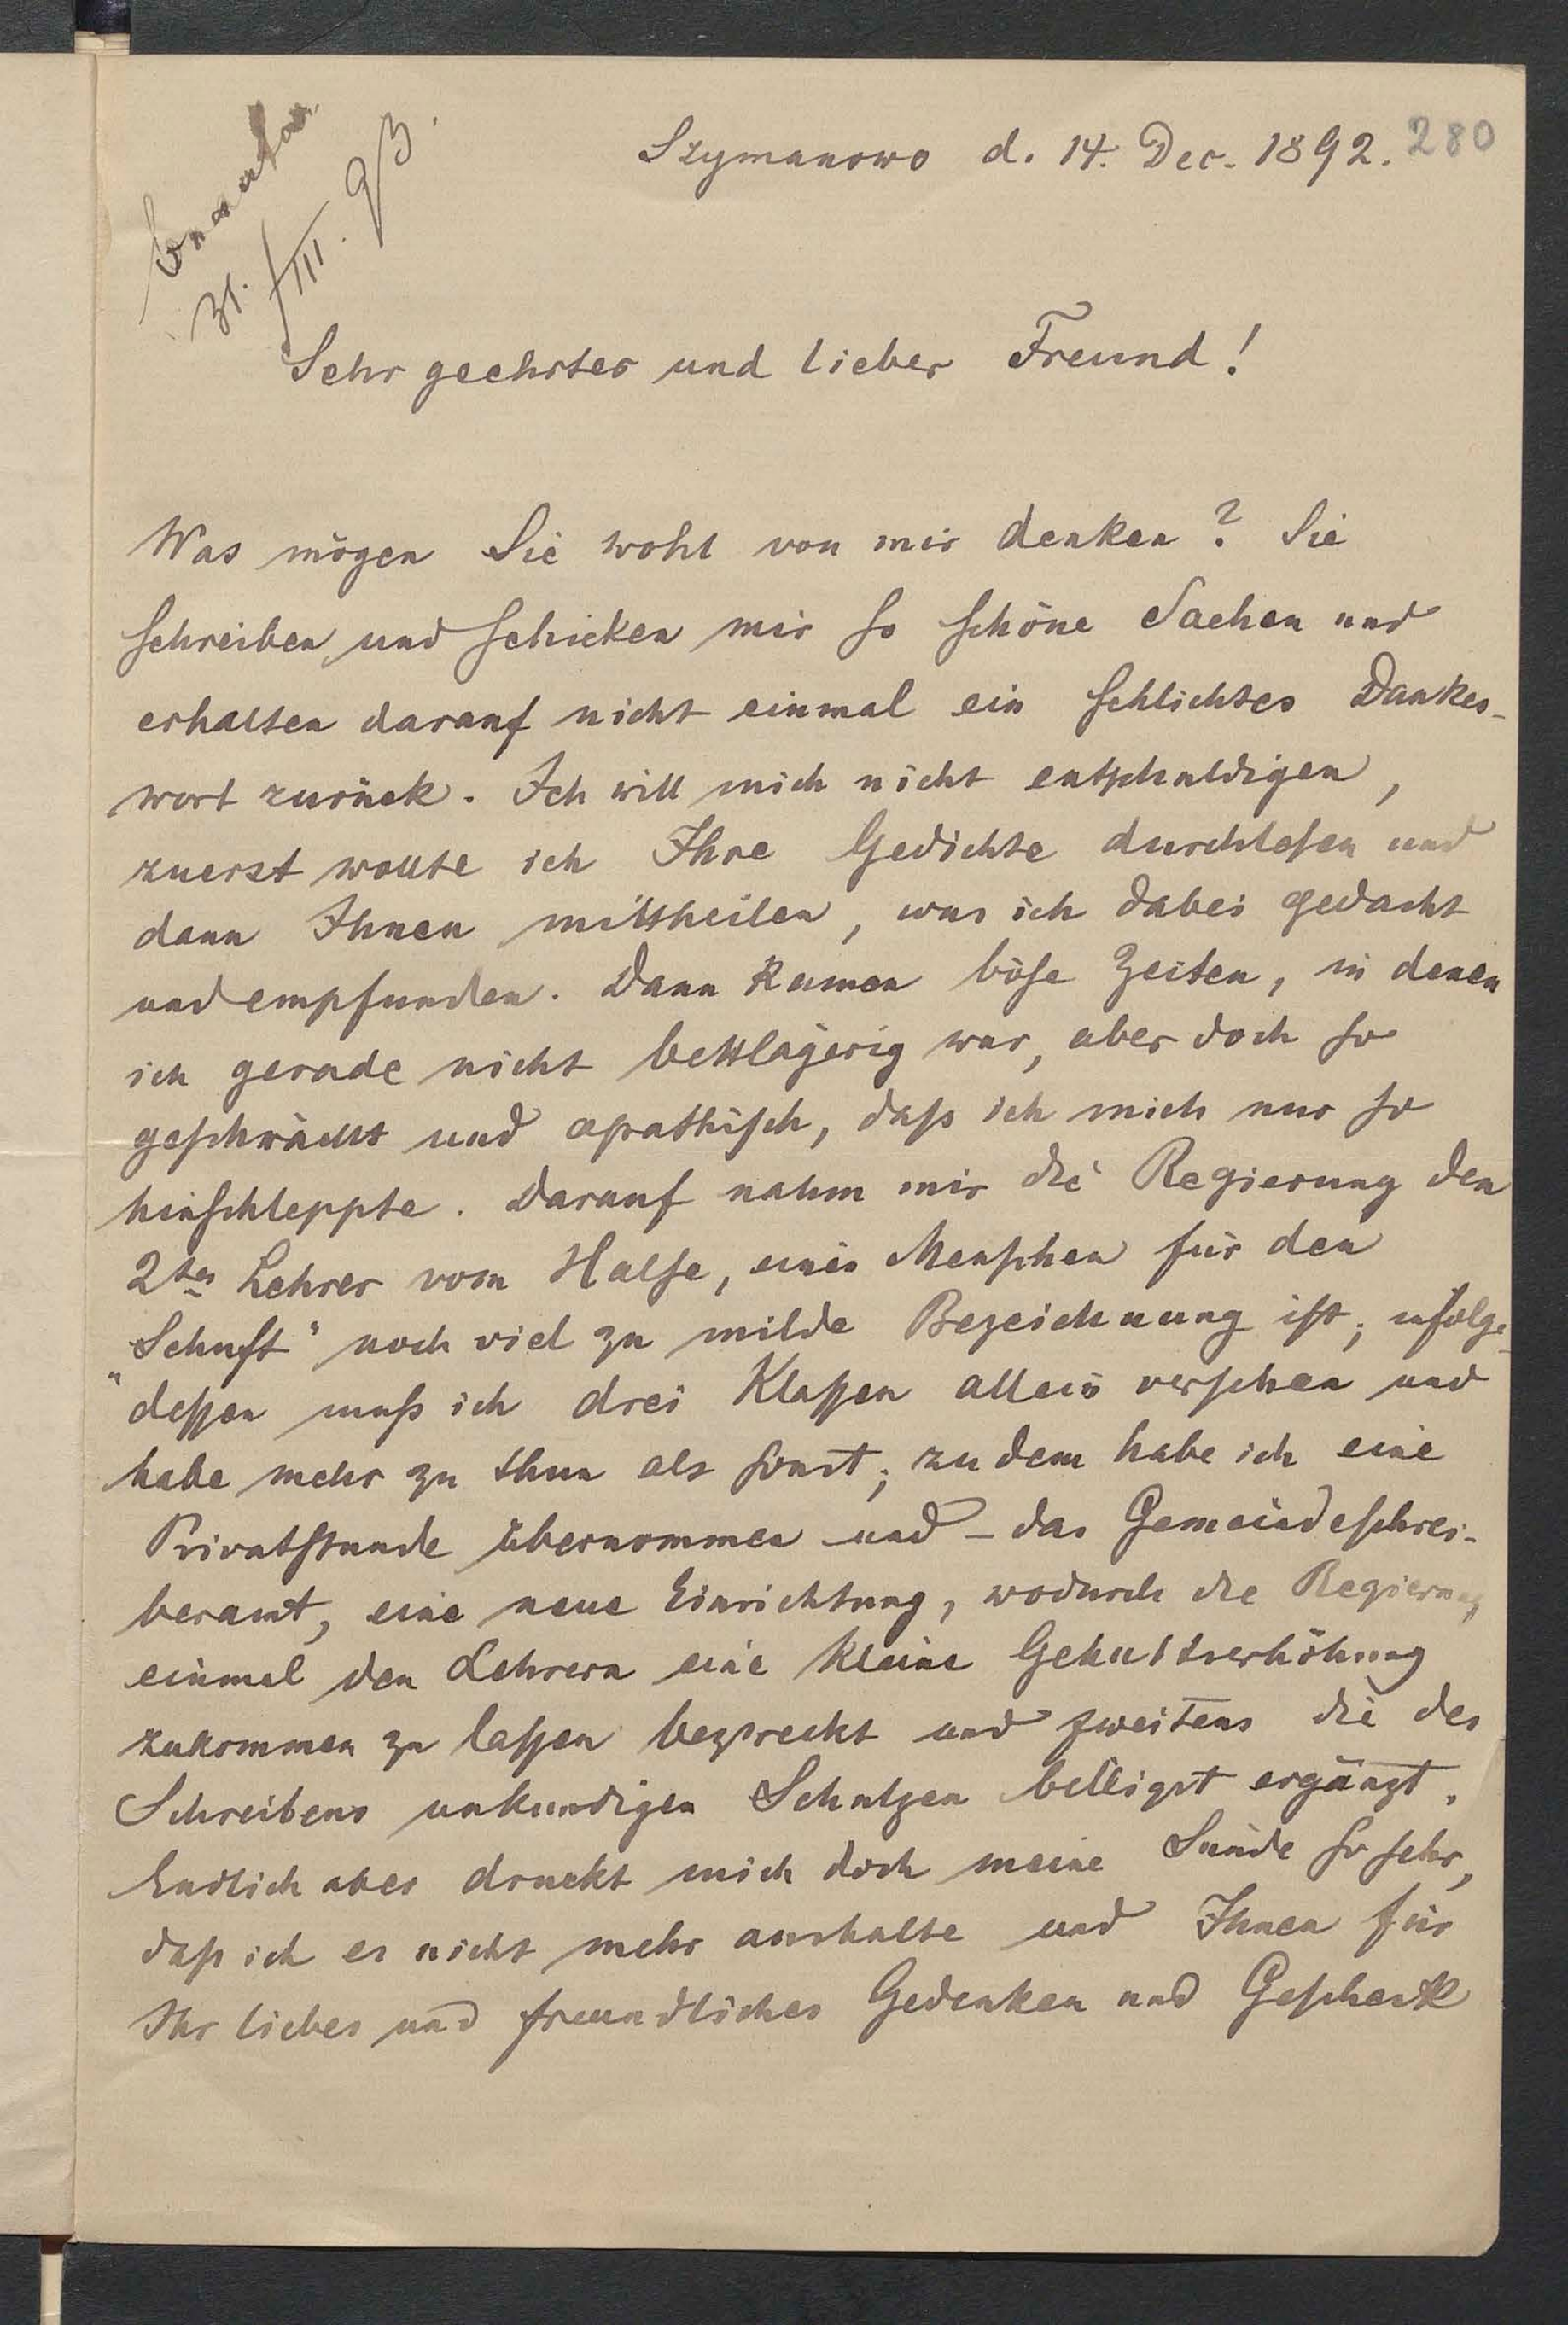 Szymanowo d. 14. Dec. 1892. 280
31./III. 93.
Sehr geehrter und lieber Freund!
Was mögen Sie wohl von mir denken? Sie
schreiben und schicken mir so schöne Sachen und
erhalten darauf nicht einmal ein schlichtes Dankes-
wort zurück. Ich will mich nicht entschuldigen,
zuerst wollte ich Ihre Gedichte durchlesen und
dann Ihnen mittheilen, was ich dabei gedacht
und empfunden. Dann kamen böse Zeiten, in denen
ich gerade nicht bettlägerig war, aber doch so
geschwächt und apathisch, daß ich mich nur so
hinschleppte. Darauf nahm mir die Regierung den
2ten Lehrer vom Halse, einen Menschen für den
„Schuft“ noch viel zu milde Bezeichnung ist; infolge-
dessen muß ich drei Klassen allein versehen und
habe mehr zu thun als sonst; zudem habe ich eine
Privatstunde übernommen und – das Gemeindeschrei-
beramt, eine neue Einrichtung, wodurch die Regierung
einmal den Lehrern eine kleine Gehaltserhöhung
zukommen zu lassen bezweckt und zweitens die des
Schreibens unkundigen Schulzen billigst ergänzt.
Endlich aber drückt mich doch meine Sünde so sehr,
daß ich es nicht mehr aushalte und Ihnen für
Ihr liebes und freundliches Gedenken und Geschenk